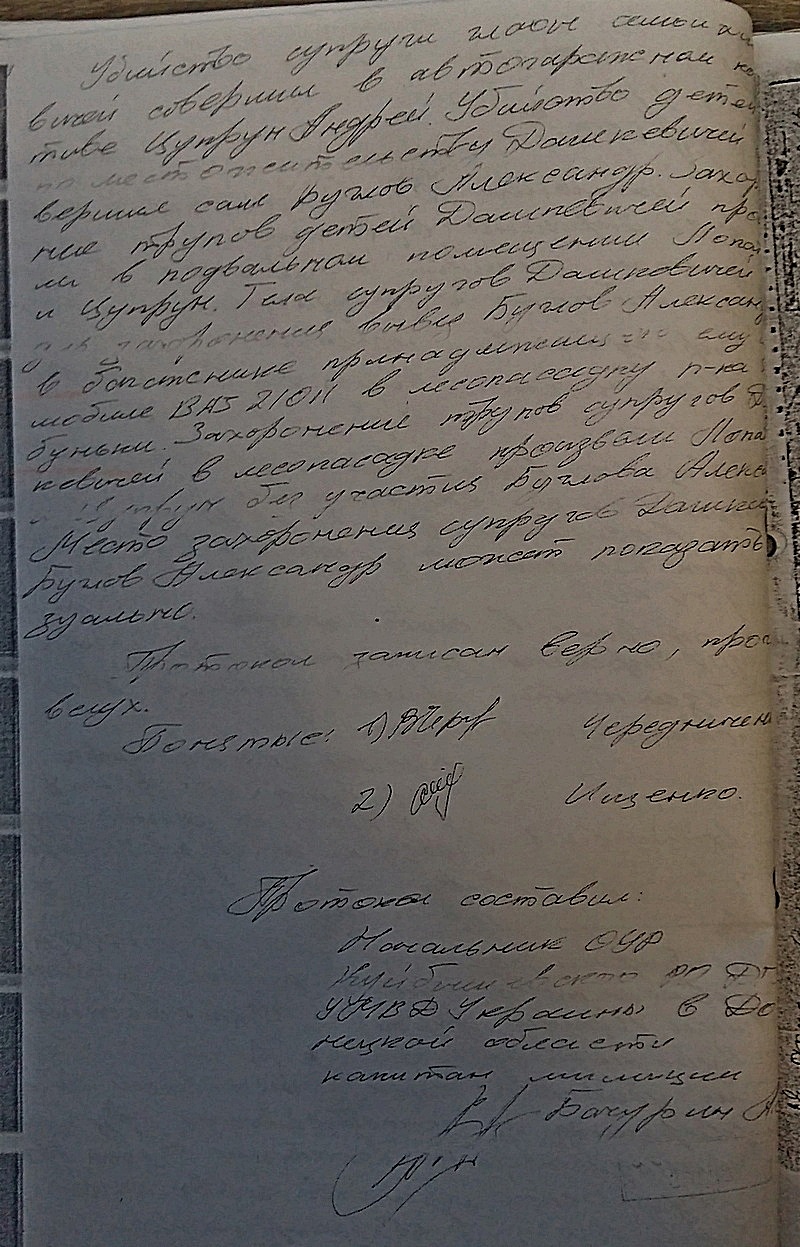 Убийство супруги главы семьи
вичей совершил в автогаражном ко
тиве Цупрун Андрей. Убийство детей
по местожительству Дашкевичей
вершил сам Буглов Александр. Захор
ние трупов детей Дашкевичей про
ли в подвальном помещении Попа
и Цупрун. Тела супругов Дашкевичей
для захоронения вывез Буглов Алексан
в багажнике принадлежащ ему
мобиле ВАЗ 21011 в лесопосадку п-ка
буньки. Захоронение трупов супругов Д
кевичей в лесопасадке произвели Попа
и Цупрун без участия Буглова Алекса
Место захоронения супругов Дашке
Буглов Александр может показать
зуально.
Протокол записан верно, проч
вслух.
Понятые: 1) Чередничен
2) Ищенко.
Протокол составил:
Начальник ОУР
Куйбышевского РО
УМВД Украины в До
нецкой области
капитан милиции
Бачурин А